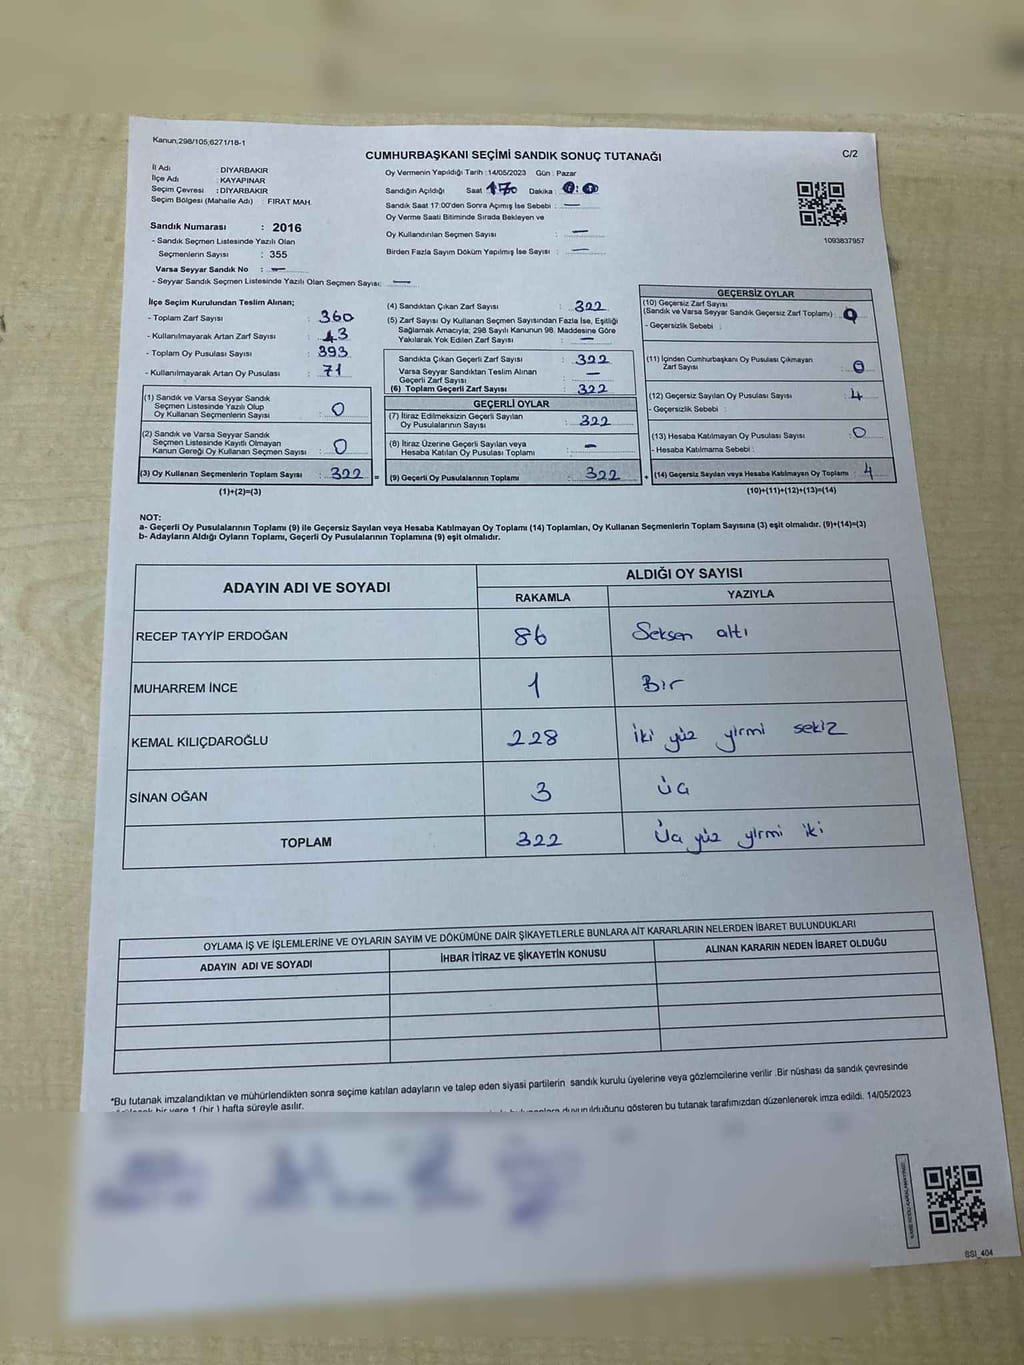 Kanun;298/105;6271/18-1
C/2
CUMHURBAŞKANI SEÇİMİ SANDIK SONUÇ TUTANAĞI
İl Adı : DİYARBAKIR
İlçe Adı : KAYAPINAR
Seçim Çevresi : DİYARBAKIR
Seçim Bölgesi (Mahalle Adı) : FIRAT MAH.
Sandık Numarası : 2016
- Sandık Seçmen Listesinde Yazılı Olan
Seçmenlerin Sayısı : 355
Varsa Seyyar Sandık No : —
- Seyyar Sandık Seçmen Listesinde Yazılı Olan Seçmen Sayısı: —
Oy Vermenin Yapıldığı Tarih :14/05/2023 Gün : Pazar
Sandığın Açıldığı Saat Dakika :
Sandık Saat 17:00'den Sonra Açılmış İse Sebebi : —
Oy Verme Saati Bitiminde Sırada Bekleyen ve
Oy Kullandırılan Seçmen Sayısı : —
Birden Fazla Sayım Döküm Yapılmış İse Sayısı : —
1093837957
İlçe Seçim Kurulundan Teslim Alınan;
- Toplam Zarf Sayısı : 360
- Kullanılmayarak Artan Zarf Sayısı : 43
- Toplam Oy Pusulası Sayısı : 393
- Kullanılmayarak Artan Oy Pusulası : 71
(1) Sandık ve Varsa Seyyar Sandık
Seçmen Listesinde Yazılı Olup
Oy Kullanan Seçmenlerin Sayısı : 0
(2) Sandık ve Varsa Seyyar Sandık
Seçmen Listesinde Kayıtlı Olmayan
Kanun Gereği Oy Kullanan Seçmen Sayısı : 0
(3) Oy Kullanan Seçmenlerin Toplam Sayısı : 322
(1)+(2)=(3)
(4) Sandıktan Çıkan Zarf Sayısı : 322
(5) Zarf Sayısı Oy Kullanan Seçmen Sayısından Fazla İse, Eşitliği
Sağlamak Amacıyla; 298 Sayılı Kanunun 98. Maddesine Göre
Yakılarak Yok Edilen Zarf Sayısı : —
Sandıkta Çıkan Geçerli Zarf Sayısı : 322
Varsa Seyyar Sandıktan Teslim Alınan
Geçerli Zarf Sayısı : —
(6) Toplam Geçerli Zarf Sayısı : 322
GEÇERLİ OYLAR
(7) İtiraz Edilmeksizin Geçerli Sayılan
Oy Pusulalarının Sayısı : 322
(8) İtiraz Üzerine Geçerli Sayılan veya
Hesaba Katılan Oy Pusulası Toplamı : —
= (9) Geçerli Oy Pusulalarının Toplamı : 322
GEÇERSİZ OYLAR
(10) Geçersiz Zarf Sayısı
(Sandık ve Varsa Seyyar Sandık Geçersiz Zarf Toplamı) : 0
- Geçersizlik Sebebi :
(11) İçinden Cumhurbaşkanı Oy Pusulası Çıkmayan
Zarf Sayısı : 0
(12) Geçersiz Sayılan Oy Pusulası Sayısı : 4
- Geçersizlik Sebebi :
(13) Hesaba Katılmayan Oy Pusulası Sayısı : 0
- Hesaba Katılmama Sebebi :
+ (14) Geçersiz Sayılan veya Hesaba Katılmayan Oy Toplamı : 4
(10)+(11)+(12)+(13)=(14)
NOT:
a- Geçerli Oy Pusulalarının Toplamı (9) ile Geçersiz Sayılan veya Hesaba Katılmayan Oy Toplamı (14) Toplamları, Oy Kullanan Seçmenlerin Toplam Sayısına (3) eşit olmalıdır. (9)+(14)=(3)
b- Adayların Aldığı Oyların Toplamı, Geçerli Oy Pusulalarının Toplamına (9) eşit olmalıdır.
ADAYIN ADI VE SOYADI ALDIĞI OY SAYISI
RAKAMLA YAZIYLA
RECEP TAYYİP ERDOĞAN 86 Seksen altı
MUHARREM İNCE 1 Bir
KEMAL KILIÇDAROĞLU 228 iki yüz yirmi sekiz
SİNAN OĞAN 3 üç
TOPLAM 322 Üç yüz yirmi iki
OYLAMA İŞ VE İŞLEMLERİNE VE OYLARIN SAYIM VE DÖKÜMÜNE DAİR ŞİKAYETLERLE BUNLARA AİT KARARLARIN NELERDEN İBARET BULUNDUKLARI
ADAYIN ADI VE SOYADI İHBAR İTİRAZ VE ŞİKAYETİN KONUSU ALINAN KARARIN NEDEN İBARET OLDUĞU
*Bu tutanak imzalandıktan ve mühürlendikten sonra seçime katılan adayların ve talep eden siyasi partilerin sandık kurulu üyelerine veya gözlemcilerine verilir .Bir nüshası da sandık çevresinde
bir yere 1 (bir ) hafta süreyle asılır.
duyurulduğunu gösteren bu tutanak tarafımızdan düzenlenerek imza edildi. 14/05/2023
SSI_404